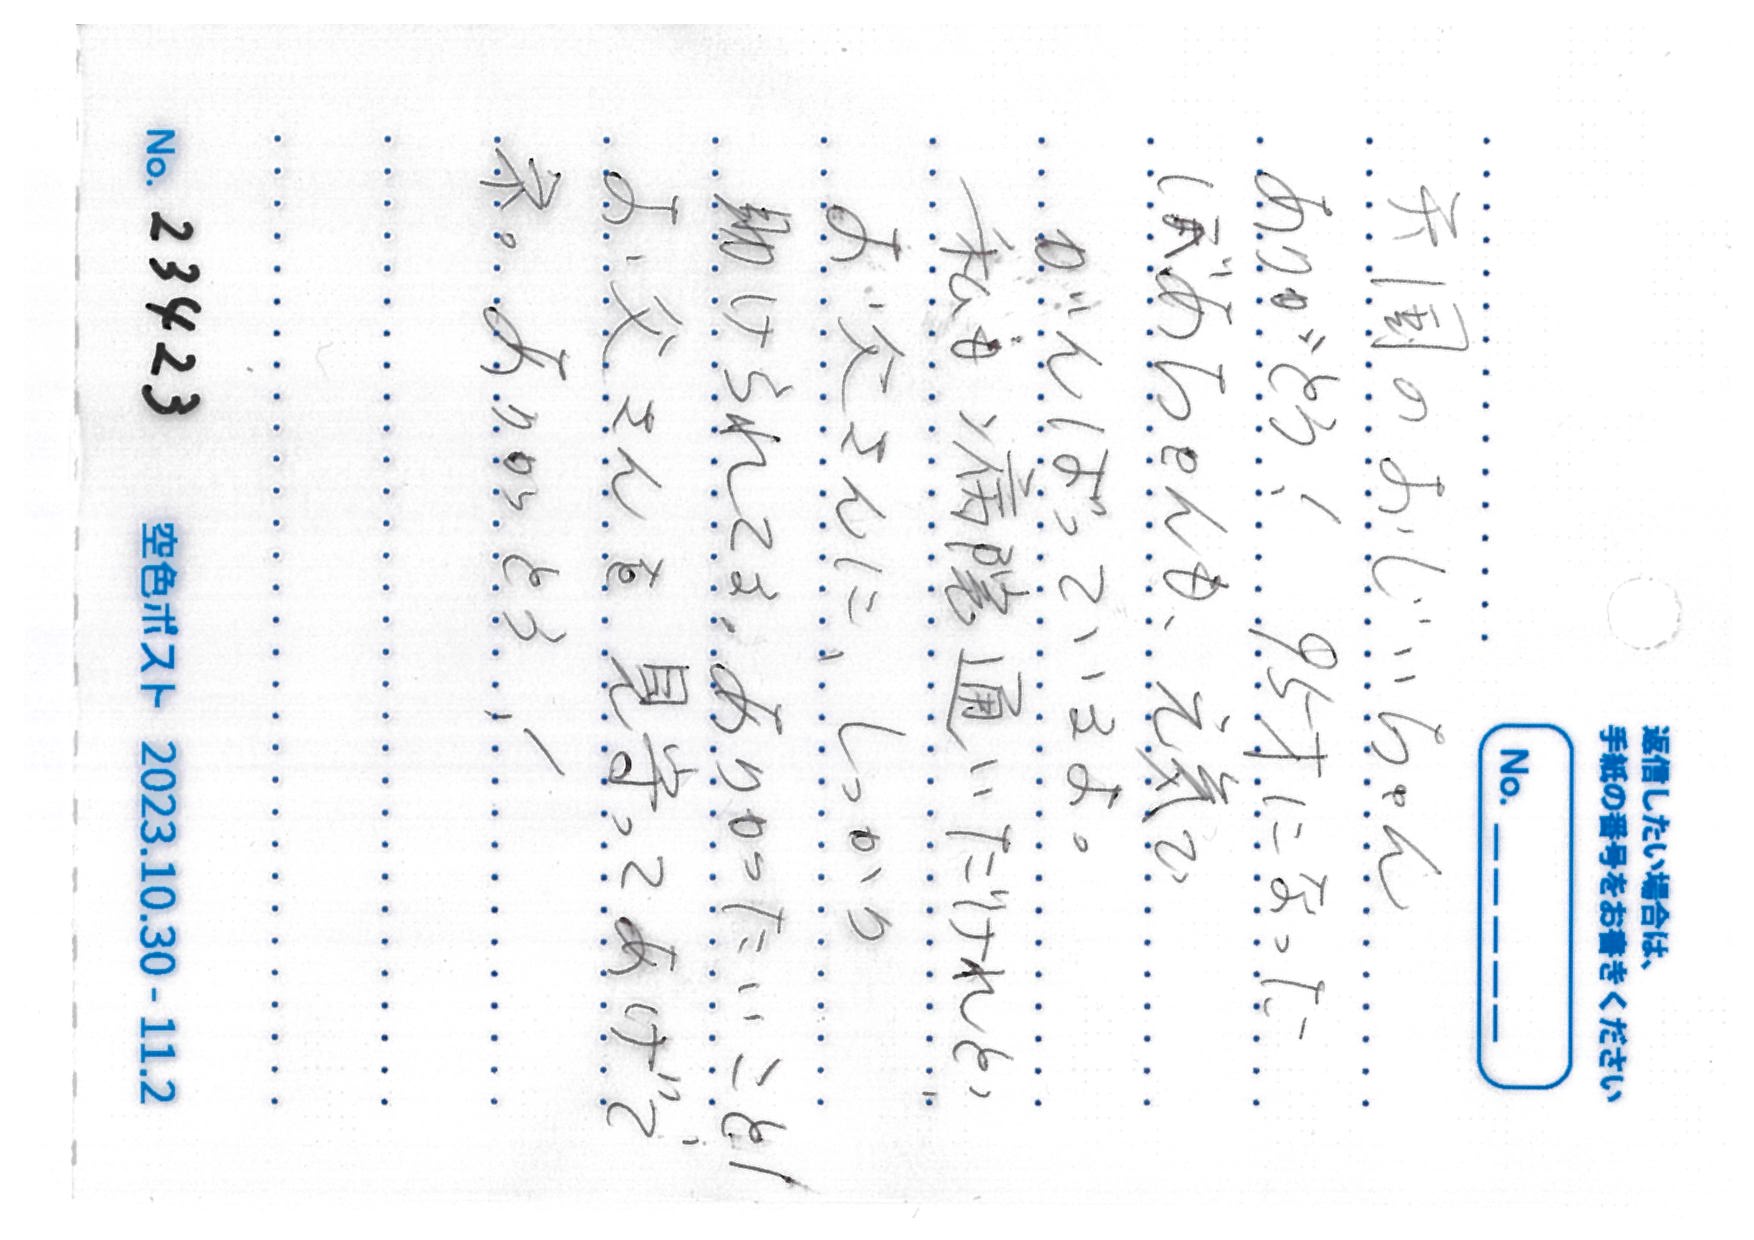 返信したい場合は、
手紙の番号をお書きください
No. _ _ _ _ _
天国のおじいちゃん
ありがとう! 95才になった
ばあちゃんも、元気で
がんばっているよ。
私も病院通いだけれど、
お父さんに、しっかり
助けられてる。ありがたいこと!
お父さんを見守ってあげて
ネ。ありがとう!
No. 23423
空色ポスト 2023.10.30 - 11.2